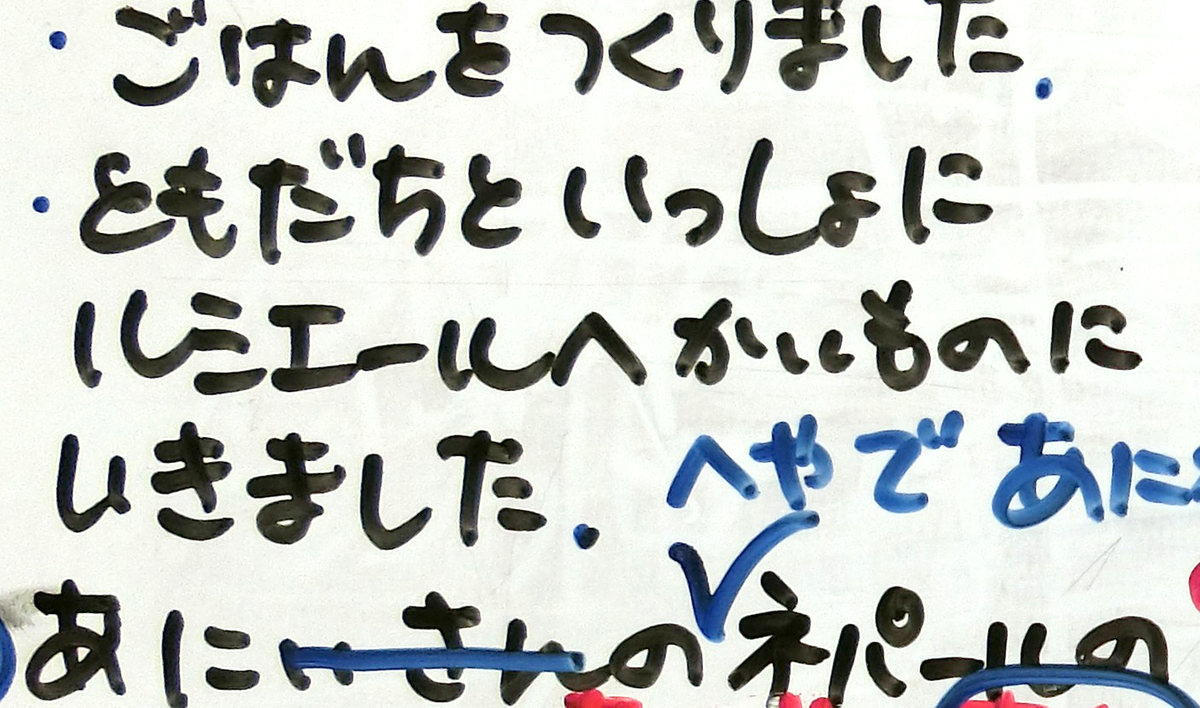 ごはんを つくりました.
ともだちと いっしょに
ルミエールへ かいものに
いきました.
へやで あに
あにいさんの ネパールの